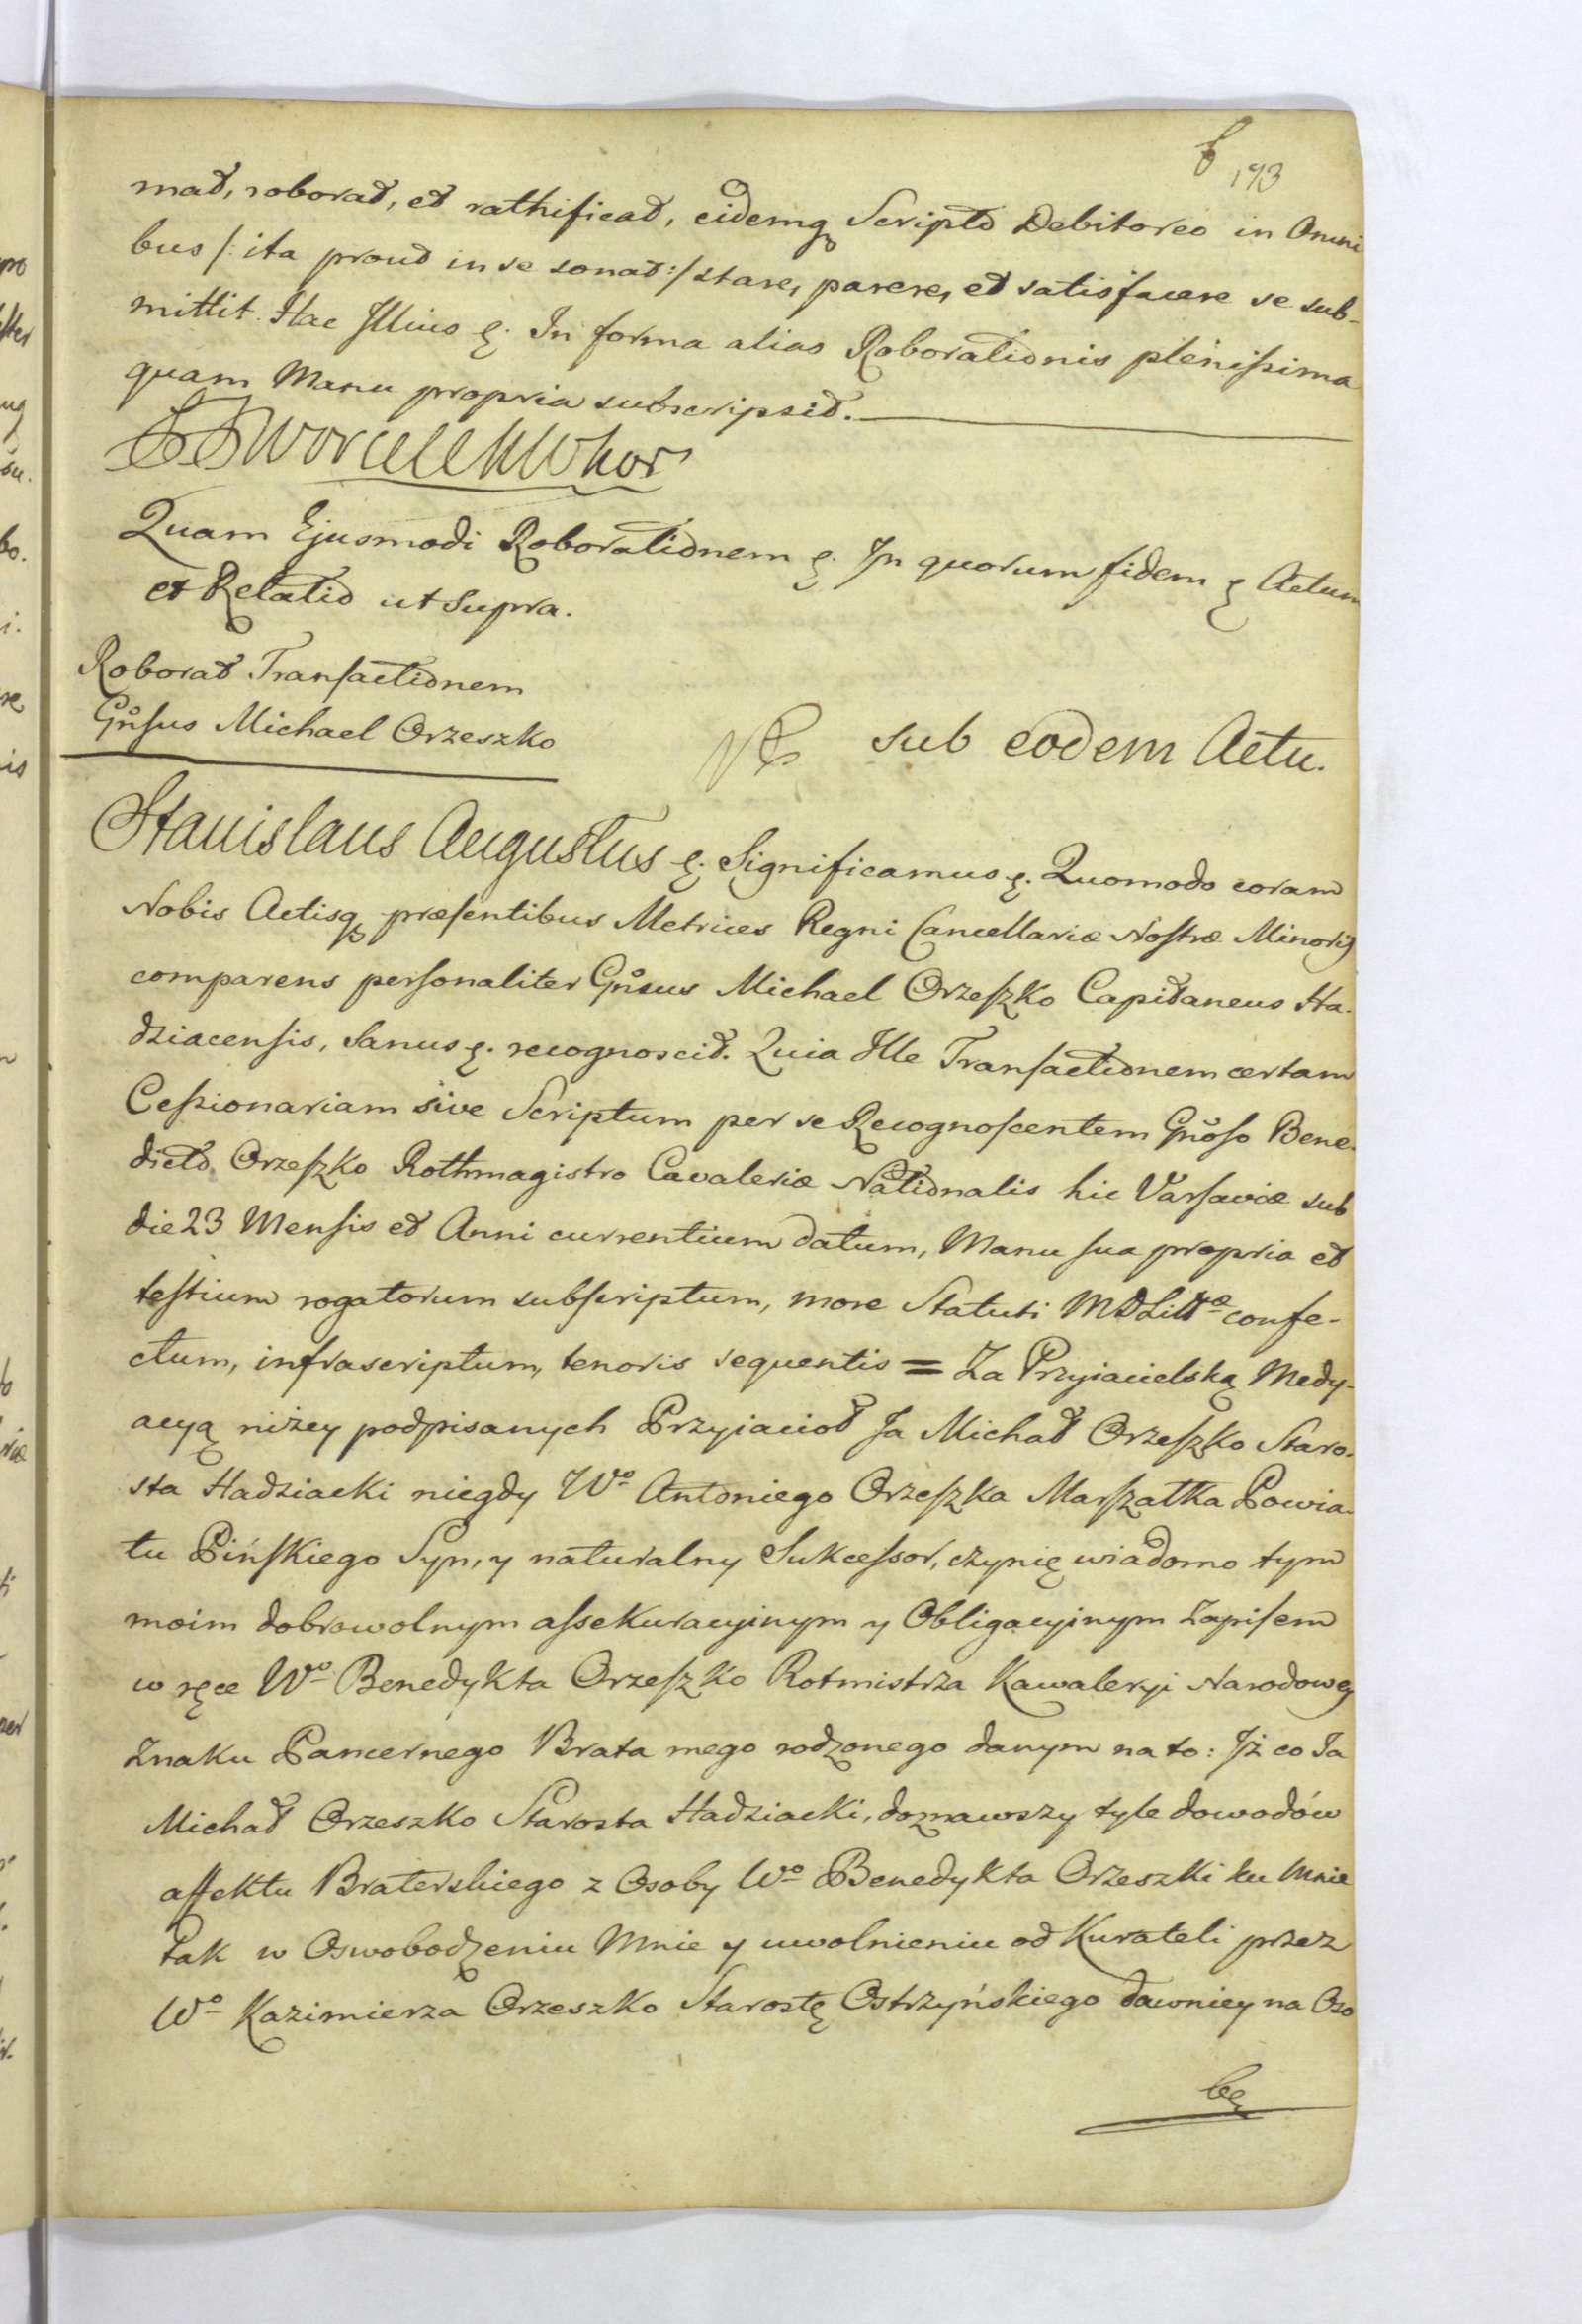 6
193
mat, roborat, et rathificat, eidemq Scripto Debitoreo in Omni
bus /: ita prout in se sonat :/ stare, parere, et satisfacere se sub-
mittit. Hac Illius ę. In forma alias Roborationis pleniſsima
quam Manu propria subscripsit.
Worcell
Quam Ejusmodi Roborationem ę. In quorum fidem ę Actum
et Relatio ut Supra.
Roborat Tranſactionem
Gnſus Michael Orzeszko
sub eodem Actu.
Stanislaus Augustus ę. Significamus ę. Quomodo coram
Nobis Actisq præſentibus Metrices Regni Cancellariæ Noſtræ Minoris
comparens perſonaliter Gnsus Michael Orzeſzko Capitaneus Ha-
dziacenſis, Sanus ę. recognoscit. Quia Ille Tranſactionem certam
Ceſsionariam sive Scriptum per se Recognoſcentem Gnoſo Bene-
dicto Orzeſzko Rothmagistro Cavaleriæ Nationalis hic Varſaviæ sub
die 23 Menſis et Anni currentium datum, Manu ſua propria et
teſtium rogatorum subſcriptum, more Statuti MDLittæ confe-
ctum, infrascriptum, tenoris sequentis = Za Przyiacielską Medy-
acyą niżey podpisanych Przyiacioł Ja Michał Orzeſzko Staro-
sta Hadziacki niegdy Wo Antoniego Orzeſzka Marſzałka Powia-
tu Pińſkiego Syn, y naturalny Sukceſsor, czynię wiadomo tym
moim dobrowolnym aſsekuracyinym y Obligacyinym Zapiſem
w ręce Wo Benedykta Orzeſzko Rotmistrza Kawaleryi Narodowey
Znaku Pancernego Brata mego rodzonego danym na to: Iż co Ja
Michał Orzeszko Starosta Hadziacki, doznawszy tyle dowodów
affektu Braterskiego z Osoby Wo Benedykta Orzeszki ku Mnie
tak w Oswobodzeniu Mnie y uwolnieniu od Kurateli przez
Wo Kazimierza Orzeszko Starostę Ostrzyńskiego dawniey na Oso
bę